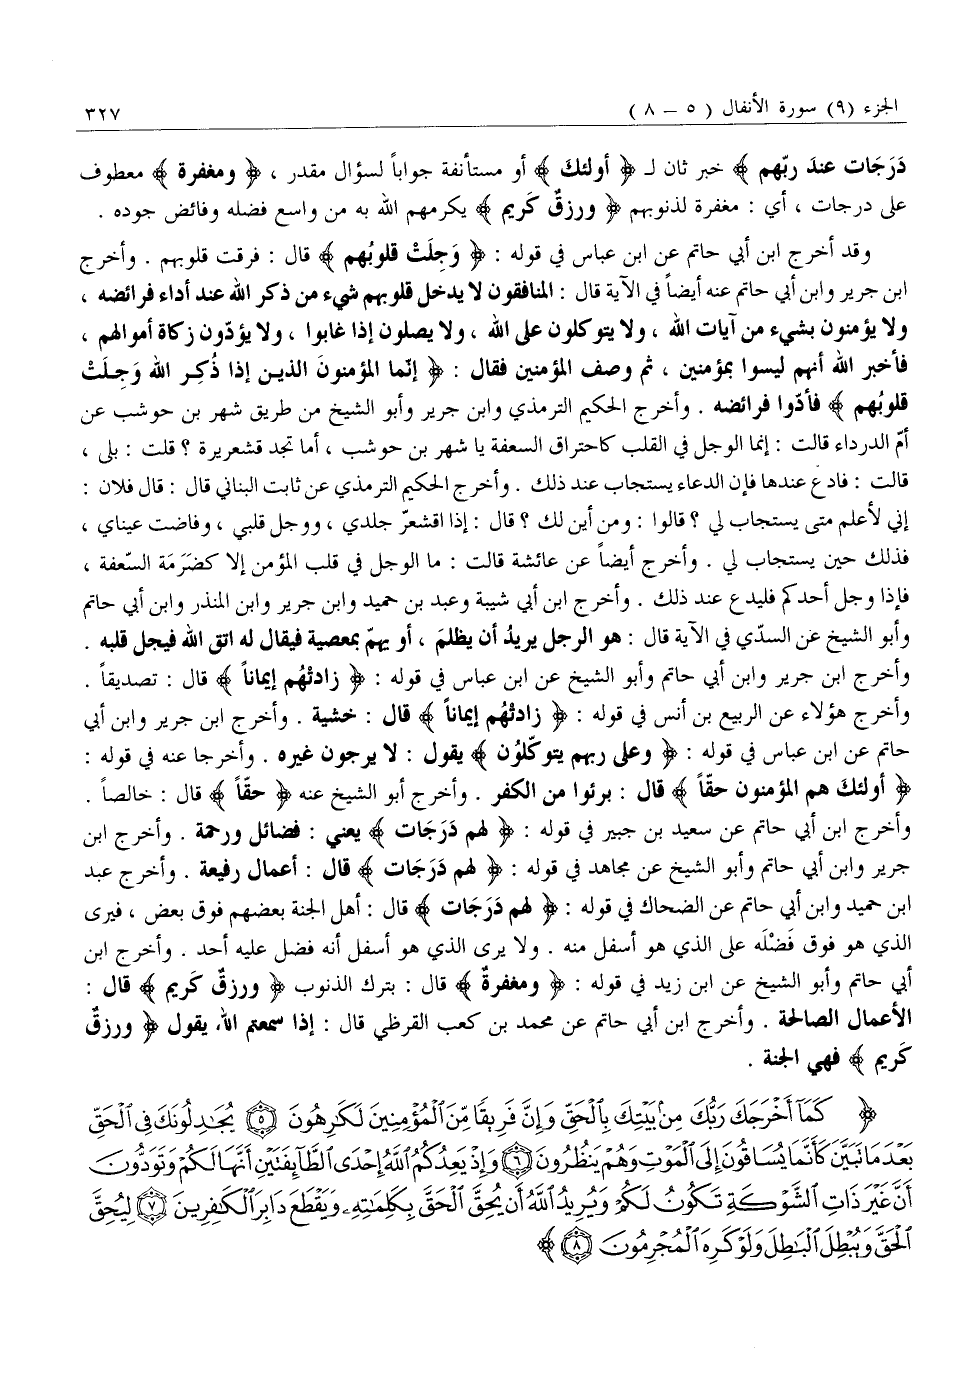 الجزء (٩) سورة الأنفال ( ٥ – ٨ ) ٣٢٧
دَرَجَات عندَ ربّهم ﴾ خبر ثان لـ ﴿ أولئكَ ﴾ أو مستأنفة جواباً لسؤال مقدر ، ﴿ ومغفرة ﴾ معطوف
على درجات ، أي : مغفرة لذنوبهم ﴿ ورزقٌ كَريم ﴾ يكرمهم الله به من واسع فضله وفائض جوده .
وقد أخرج ابن أبي حاتم عن ابن عباس في قوله : ﴿ وَجِلَتْ قلوبُهم ﴾ قال : فرقت قلوبهم . وأخرج
ابن جرير وابن أبي حاتم عنه أيضاً في الآية قال : المنافقون لا يدخل قلوبهم شيء من ذكر الله عند أداء فرائضه ،
ولا يؤمنون بشيء من آيات الله ، ولا يتوكلون على الله ، ولا يصلون إذا غابوا ، ولا يؤدّون زكاة أموالهم ،
فأخبر الله أنهم ليسوا بمؤمنين ، ثم وصف المؤمنين فقال : ﴿ إنّما المؤمنونَ الذيـن إذا ذُكِـر الله وَجِـلَتْ
قلوبُهم ﴾ فأدّوا فرائضه . وأخرج الحكيم الترمذي وابن جرير وأبو الشيخ من طريق شهر بن حوشب عن
أمّ الدرداء قالت : إنما الوجل في القلب كاحتراق السعفة يا شهر بن حوشب ، أما تجد قشعريرة ؟ قلت : بلى ،
قالت : فادع عندها فإن الدعاء يستجاب عند ذلك . وأخرج الحكيم الترمذي عن ثابت البناني قال : قال فلان :
إني لأعلم متى يستجاب لي ؟ قالوا : ومن أين لك ؟ قال : إذا اقشعرّ جلدي ، ووجل قلبي ، وفاضت عيناي ،
فذلك حين يستجاب لي . وأخرج أيضاً عن عائشة قالت : ما الوجل في قلب المؤمن إلا كضَرَمَة السّعفة ،
فإذا وجل أحدكم فليدع عند ذلك . وأخرج ابن أبي شيبة وعبد بن حميد وابن جرير وابن المنذر وابن أبي حاتم
وأبو الشيخ عن السدّي في الآية قال : هو الرجل يريدُ أن يظلمَ ، أو يهمّ بمعصية فيقال له اتق الله فيجل قلبه .
وأخرج ابن جرير وابن أبي حاتم وأبو الشيخ عن ابن عباس في قوله : ﴿ زادتْهُم إيماناً ﴾ قال : تصديقاً .
وأخرج هؤلاء عن الربيع بن أنس في قوله : ﴿ زادتْهُم إيماناً ﴾ قال : خشية . وأخرج ابن جرير وابن أبي
حاتم عن ابن عباس في قوله : ﴿ وعلى ربهم يتوكّلُون ﴾ يقول : لا يرجون غيره . وأخرجا عنه في قوله :
﴿ أولئكَ هم المؤمنون حقّاً ﴾ قال : برئوا من الكفر . وأخرج أبو الشيخ عنه ﴿ حقّاً ﴾ قال : خالصاً .
وأخرج ابن أبي حاتم عن سعيد بن جبير في قوله : ﴿ لهم دَرَجات ﴾ يعني : فضائل ورحمة . وأخرج ابن
جرير وابن أبي حاتم وأبو الشيخ عن مجاهد في قوله : ﴿ لهم دَرَجات ﴾ قال : أعمال رفيعة . وأخرج عبد
ابن حميد وابن أبي حاتم عن الضحاك في قوله : ﴿ لهم دَرَجات ﴾ قال : أهل الجنة بعضهم فوق بعض ، فيرى
الذي هو فوق فَضْلَه على الذي هو أسفل منه . ولا يرى الذي هو أسفل أنه فضل عليه أحد . وأخرج ابن
أبي حاتم وأبو الشيخ عن ابن زيد في قوله : ﴿ ومغفرةٌ ﴾ قال : بترك الذنوب ﴿ ورزقٌ كَريم ﴾ قال :
الأعمال الصالحة . وأخرج ابن أبي حاتم عن محمد بن كعب القرظي قال : إذا سمعتم الله يقول ﴿ ورزقٌ
كَريم ﴾ فهي الجنة .
﴿ كَمَآ أَخْرَجَكَ رَبُّكَ مِنۢ بَيْتِكَ بِٱلْحَقِّ وَإِنَّ فَرِيقًا مِّنَ ٱلْمُؤْمِنِينَ لَكَٰرِهُونَ ۝٥ يُجَٰدِلُونَكَ فِى ٱلْحَقِّ
بَعْدَمَا تَبَيَّنَ كَأَنَّمَا يُسَاقُونَ إِلَى ٱلْمَوْتِ وَهُمْ يَنظُرُونَ ۝٦ وَإِذْ يَعِدُكُمُ ٱللَّهُ إِحْدَى ٱلطَّآئِفَتَيْنِ أَنَّهَا لَكُمْ وَتَوَدُّونَ
أَنَّ غَيْرَ ذَاتِ ٱلشَّوْكَةِ تَكُونُ لَكُمْ وَيُرِيدُ ٱللَّهُ أَن يُحِقَّ ٱلْحَقَّ بِكَلِمَٰتِهِۦ وَيَقْطَعَ دَابِرَ ٱلْكَٰفِرِينَ ۝٧ لِيُحِقَّ
ٱلْحَقَّ وَيُبْطِلَ ٱلْبَٰطِلَ وَلَوْ كَرِهَ ٱلْمُجْرِمُونَ ۝٨ ﴾